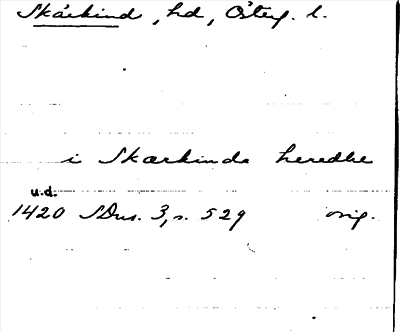 Skärkind, hd, Österg. l.
i Skærkinda heredhe
u.d.
1420 SDns. 3, s. 529 orig.